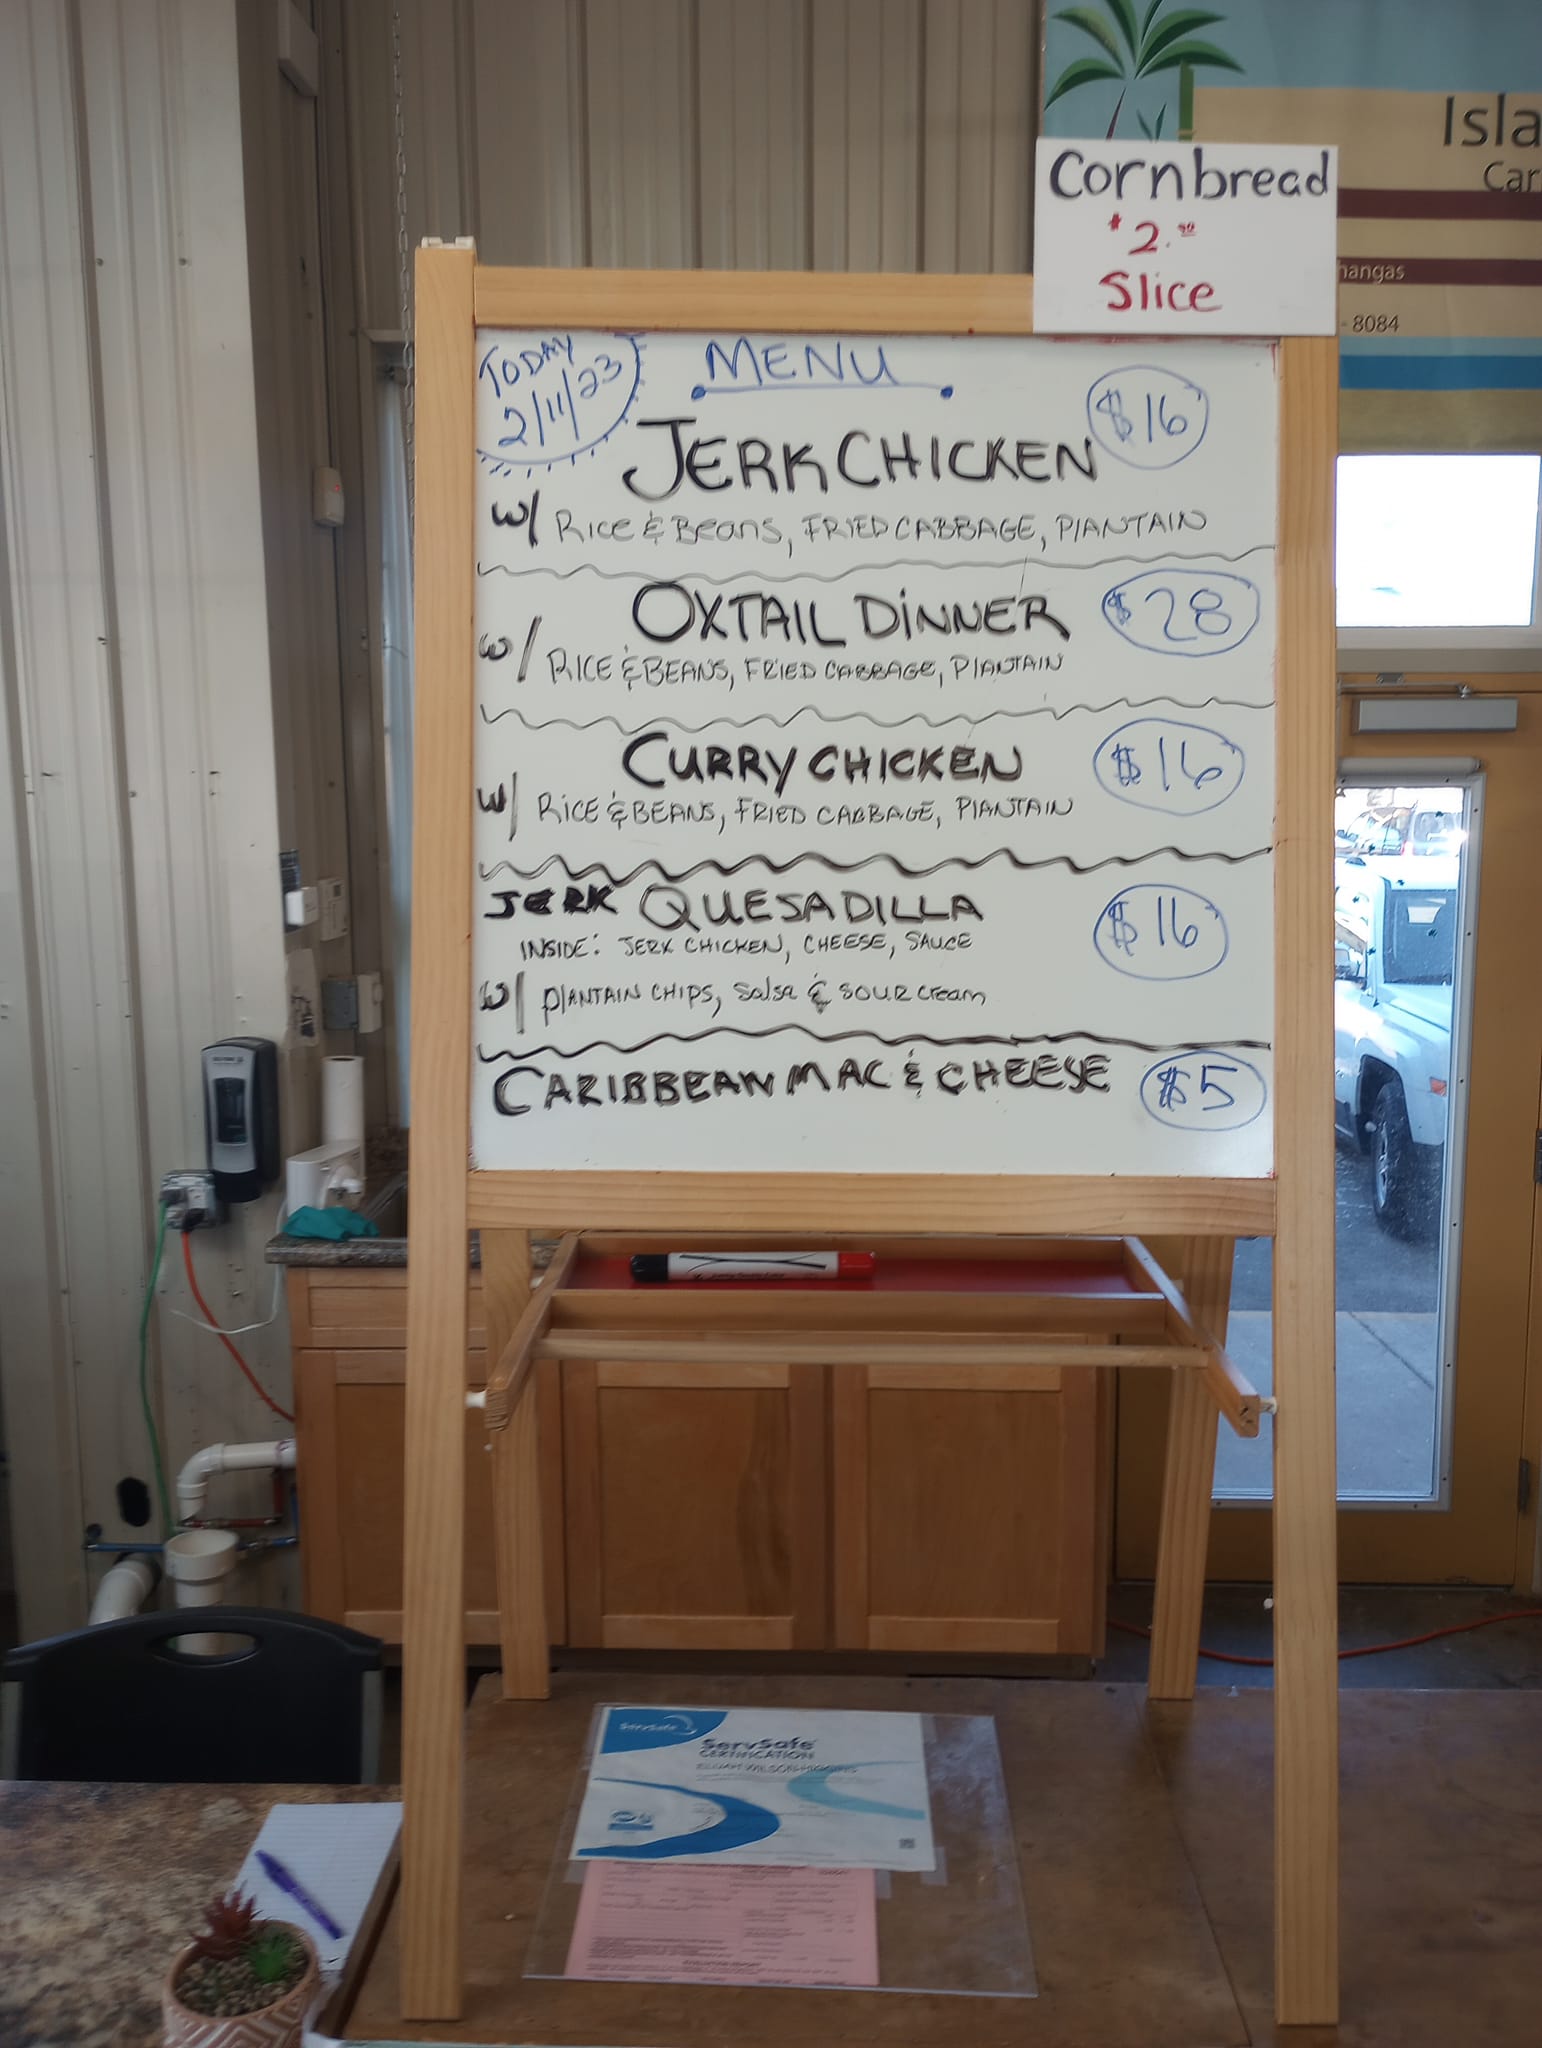 Isla
Car
hangas
- 8084
Cornbread
$2.50
Slice
TODAY
2/11/23
MENU
JERK CHICKEN $16
W/ Rice & Beans, FRIED CABBAGE, PLANTAIN
OXTAIL DINNER $28
W/ RICE & BEANS, FRIED CABBAGE, PLANTAIN
CURRY CHICKEN $16
W/ RICE & BEANS, FRIED CABBAGE, PLANTAIN
JERK QUESADILLA $16
INSIDE: JERK CHICKEN, CHEESE, SAUCE
W/ PLANTAIN CHIPS, Salsa & SOUR cream
CARIBBEAN MAC & CHEESE $5
ServSafe
ServSafe
CERTIFICATION
ELIJAH WILSON-HIGGINS